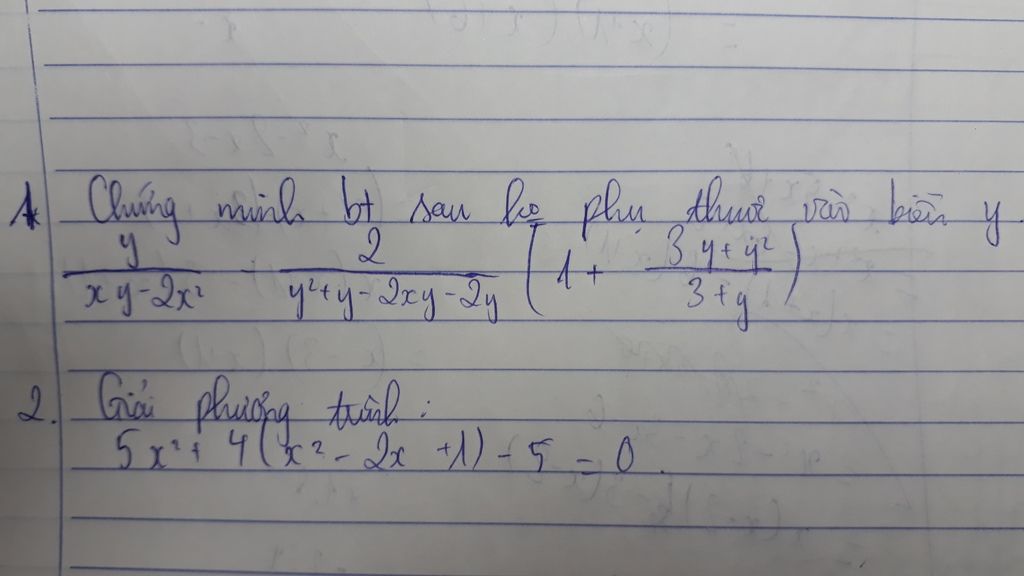 1. Chứng minh bt sau ko phụ thuộc vào biến y.
y/(xy-2x²) - 2/(y²+y-2xy-2y) (1 + (3y+y²)/(3+y))
2. Giải phương trình:
5x² + 4(x² - 2x + 1) - 5 = 0.